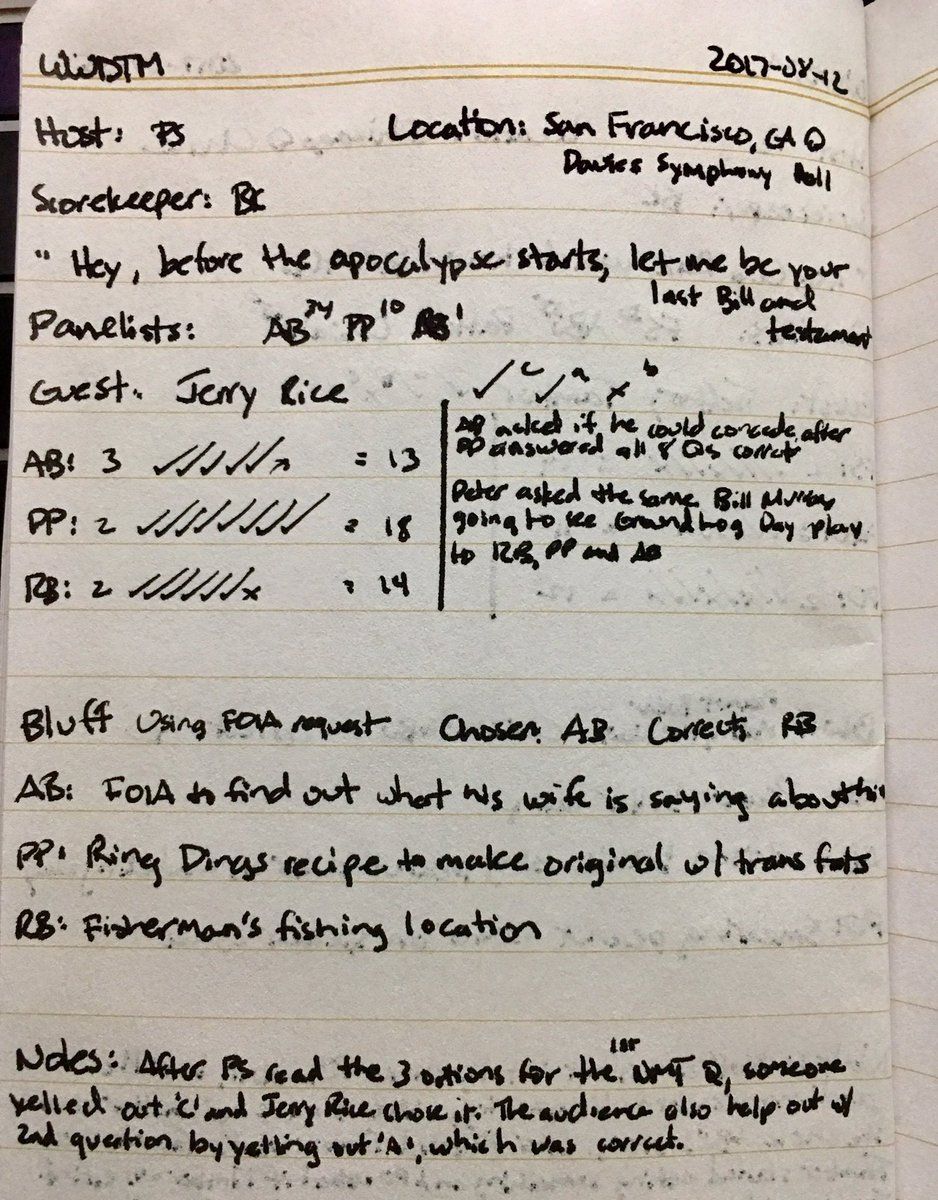 WWDTM 2017-08-12
Host: PS Location: San Francisco, CA
Davies Symphony Hall
Scorekeeper: BK
" Hey, before the apocalypse starts, let me be your
last Bill and
testament
Panelists: AB 34 PP 10 RB 1
Guest: Jerry Rice ✓ c ✓ a x b
AB asked if he could concede after
PP answered all 8 Qs correct
AB: 3 ✓✓✓✓✓ = 13
Peter asked the same Bill Murray
going to see Groundhog Day play
to RB, PP and AB
PP: 2 ✓✓✓✓✓✓✓✓ = 18
RB: 2 ✓✓✓✓✓✓x = 14
Bluff Using FOIA request Chosen: AB Correct: RB
AB: FOIA to find out what his wife is saying about
PP: Ring Dings recipe to make original w/ trans fats
RB: Fisherman's fishing location
Notes: After PS read the 3 options for the 1st NMJ Q, someone
yelled out 'C' and Jerry Rice chose it. The audience also help out w/
2nd question by yelling out 'A', which was correct.